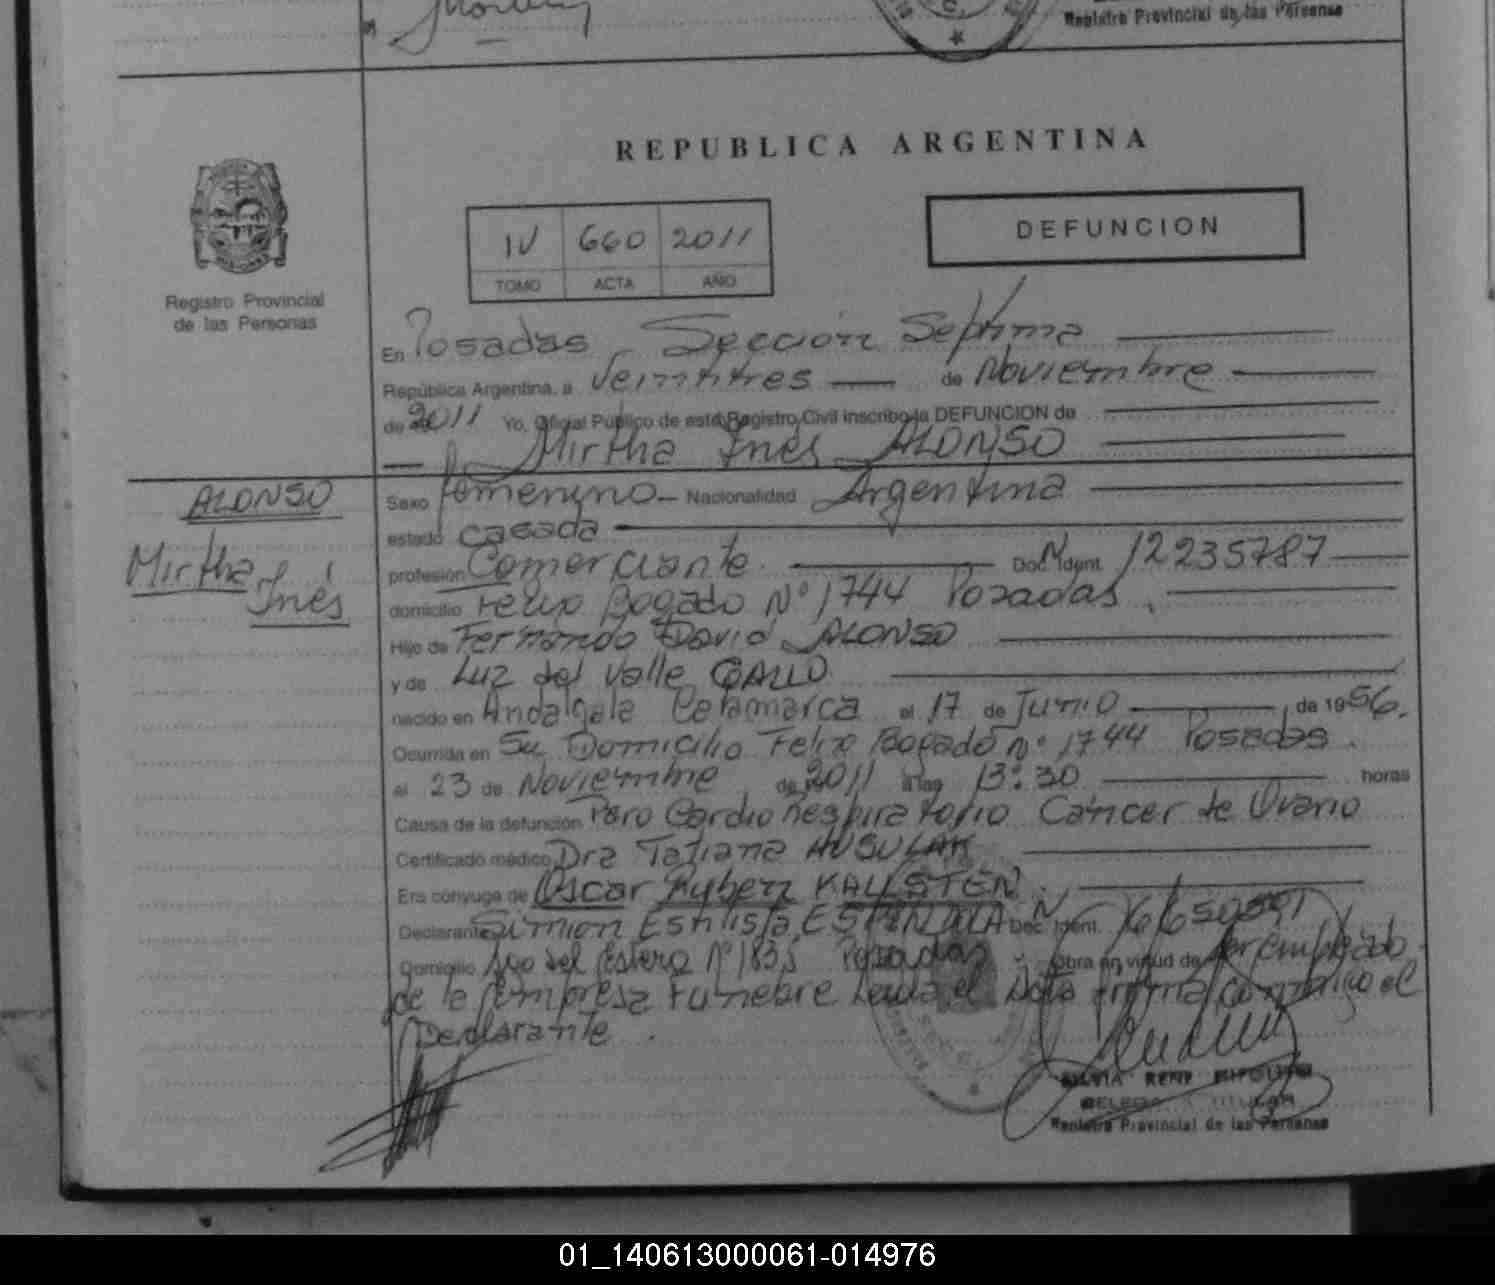 Registro Provincial de las Personas
REPUBLICA ARGENTINA
IV 660 2011
TOMO ACTA AÑO
DEFUNCION
Registro Provincial
de las Personas
En Posadas Sección Séptima
República Argentina, a Veintitres de Noviembre
de 2011 Yo, Oficial Público de este Registro Civil inscribo la DEFUNCION de
Mirtha Inés ALONSO
ALONSO
Mirtha
Inés
Sexo femenino Nacionalidad Argentina
estado casada
profesión Comerciante Doc. Ident. N 12235787
domicilio Felix Bogado Nº 1744 Posadas.
Hijo de Fernando David ALONSO
y de Luz del Valle GALLO
nacido en Andalgala Catamarca el 17 de Junio de 1956.
Ocurrida en Su Domicilio Felix Bogado nº 1744 Posadas.
el 23 de Noviembre de 2011 a las 13:30 horas
Causa de la defunción Paro Cardio Respiratorio Cáncer de Ovario
Certificado médico Dra Tatiana HUSULAK
Era cónyuge de Oscar Ryberz KALLSTEN.
Declarante Simion Estilista ESPINDOLA Doc. Ident. N
Domicilio Sgo del Estero Nº 1835 Posadas. Obra en virtud de ser empleado
de la Empresa Funebre Leida el Acta firma conmigo el
Declarante.
SILVIA RENE
Registro Provincial de las Personas
01_140613000061-014976